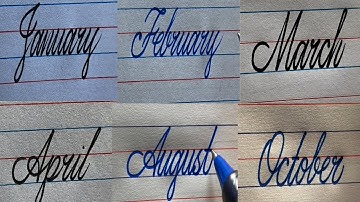 January February March
April August October